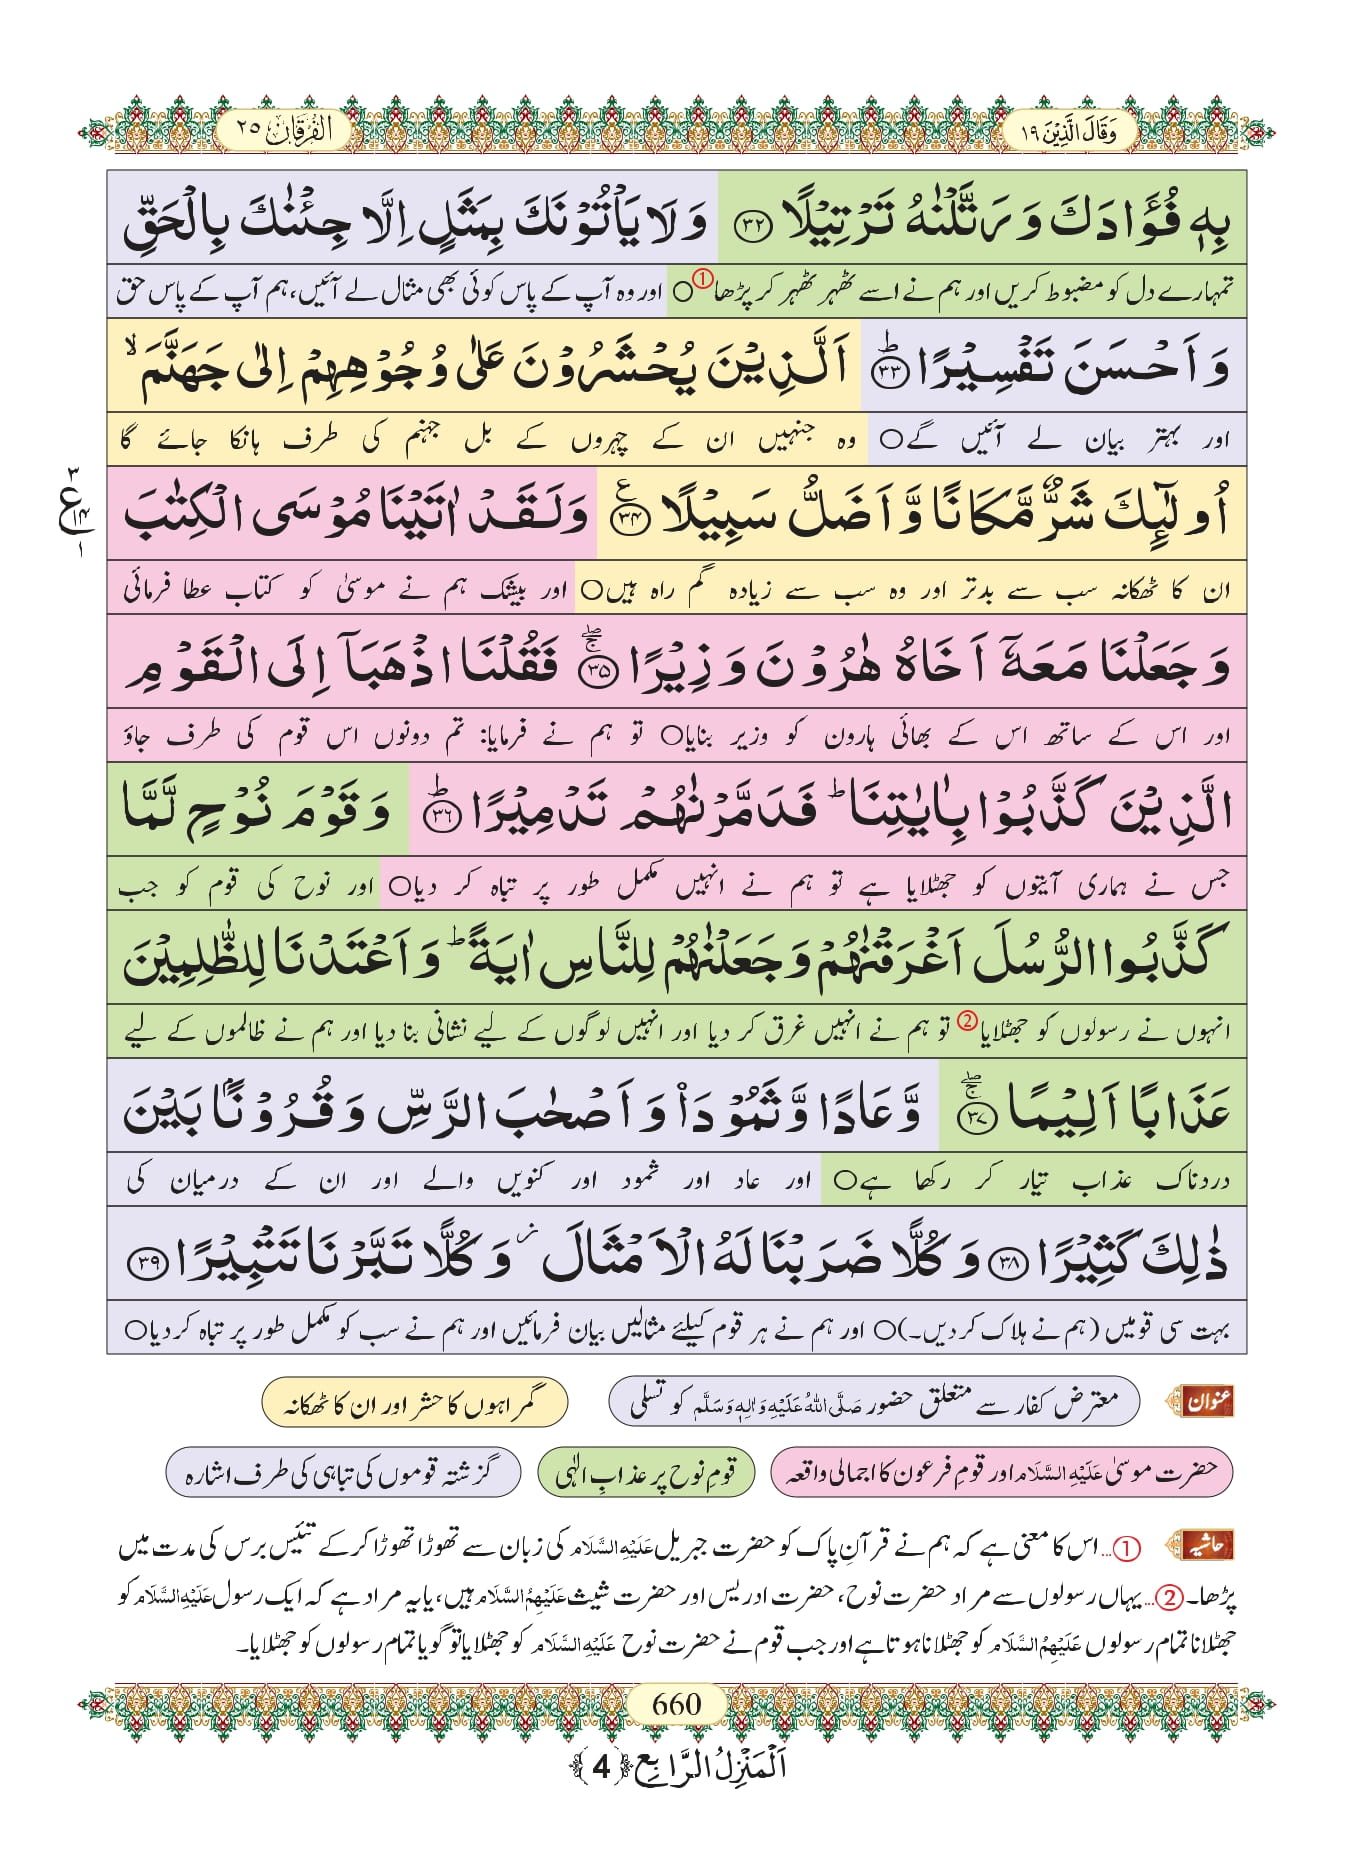 وَقَالَ الَّذِيْنَ ١٩
الفُرقَان ٢٥
بِهٖ فُؤَادَكَ وَ رَتَّلْنٰهُ تَرْتِيْلًا ﴿۳۲﴾ وَلَا يَاْتُوْنَكَ بِمَثَلٍ اِلَّا جِئْنٰكَ بِالْحَقِّ
تمہارے دل کو مضبوط کریں اور ہم نے اسے ٹھہر ٹھہر کر پڑھا① ○ اور وہ آپ کے پاس کوئی بھی مثال لے آئیں، ہم آپ کے پاس حق
وَ اَحْسَنَ تَفْسِيْرًا ﴿ؕ۳۳﴾ اَلَّذِيْنَ يُحْشَرُوْنَ عَلٰى وُجُوْهِهِمْ اِلٰى جَهَنَّمَ ۙ
اور بہتر بیان لے آئیں گے ○ وہ جنہیں ان کے چہروں کے بل جہنم کی طرف ہانکا جائے گا
اُولٰٓئِكَ شَرٌّ مَّكَانًا وَّ اَضَلُّ سَبِيْلًا ﴿۳۴﴾ ع وَلَقَدْ اٰتَيْنَا مُوْسَى الْكِتٰبَ
۳
ع
۱۴
۱
ان کا ٹھکانہ سب سے بدتر اور وہ سب سے زیادہ گم راہ ہیں ○ اور بیشک ہم نے موسیٰ کو کتاب عطا فرمائی
وَ جَعَلْنَا مَعَهٗۤ اَخَاهُ هٰرُوْنَ وَزِيْرًا ﴿ۚۖ۳۵﴾ فَقُلْنَا اذْهَبَاۤ اِلَى الْقَوْمِ
اور اس کے ساتھ اس کے بھائی ہارون کو وزیر بنایا ○ تو ہم نے فرمایا: تم دونوں اس قوم کی طرف جاؤ
الَّذِيْنَ كَذَّبُوْا بِاٰيٰتِنَا ؕ فَدَمَّرْنٰهُمْ تَدْمِيْرًا ﴿ؕ۳۶﴾ وَ قَوْمَ نُوْحٍ لَّمَّا
جس نے ہماری آیتوں کو جھٹلایا ہے تو ہم نے انہیں مکمل طور پر تباہ کر دیا ○ اور نوح کی قوم کو جب
كَذَّبُوا الرُّسُلَ اَغْرَقْنٰهُمْ وَ جَعَلْنٰهُمْ لِلنَّاسِ اٰيَةً ؕ وَ اَعْتَدْنَا لِلظّٰلِمِيْنَ
انہوں نے رسولوں کو جھٹلایا② تو ہم نے انہیں غرق کر دیا اور انہیں لوگوں کے لیے نشانی بنا دیا اور ہم نے ظالموں کے لیے
عَذَابًا اَلِيْمًا ﴿ۚۖ۳۷﴾ وَّ عَادًا وَّ ثَمُوْدَا۠ وَ اَصْحٰبَ الرَّسِّ وَ قُرُوْنًۢا بَيْنَ
دردناک عذاب تیار کر رکھا ہے ○ اور عاد اور ثمود اور کنویں والے اور ان کے درمیان کی
ذٰلِكَ كَثِيْرًا ﴿۳۸﴾ وَ كُلًّا ضَرَبْنَا لَهُ الْاَمْثَالَ ؗ وَ كُلًّا تَبَّرْنَا تَتْبِيْرًا ﴿۳۹﴾
بہت سی قومیں (ہم نے ہلاک کر دیں۔) ○ اور ہم نے ہر قوم کیلئے مثالیں بیان فرمائیں اور ہم نے سب کو مکمل طور پر تباہ کر دیا ○
عنوان معترض کفار سے متعلق حضور صَلَّی اللہُ عَلَیْہِ وَاٰلِہٖ وَسَلَّم کو تسلی گمراہوں کا حشر اور ان کا ٹھکانہ
حضرت موسیٰ عَلَیْہِ السَّلَام اور قومِ فرعون کا اجمالی واقعہ قومِ نوح پر عذابِ الٰہی گزشتہ قوموں کی تباہی کی طرف اشارہ
حاشیہ ①... اس کا معنی ہے کہ ہم نے قرآنِ پاک کو حضرت جبریل عَلَیْہِ السَّلَام کی زبان سے تھوڑا تھوڑا کر کے تئیس برس کی مدت میں
پڑھا۔ ②... یہاں رسولوں سے مراد حضرت نوح، حضرت ادریس اور حضرت شیث عَلَیْہِمُ السَّلَام ہیں، یا یہ مراد ہے کہ ایک رسول عَلَیْہِ السَّلَام کو
جھٹلانا تمام رسولوں عَلَیْہِمُ السَّلَام کو جھٹلانا ہوتا ہے اور جب قوم نے حضرت نوح عَلَیْہِ السَّلَام کو جھٹلایا تو گویا تمام رسولوں کو جھٹلایا۔
660
اَلْمَنْزِلُ الرَّابِع ﴿4﴾